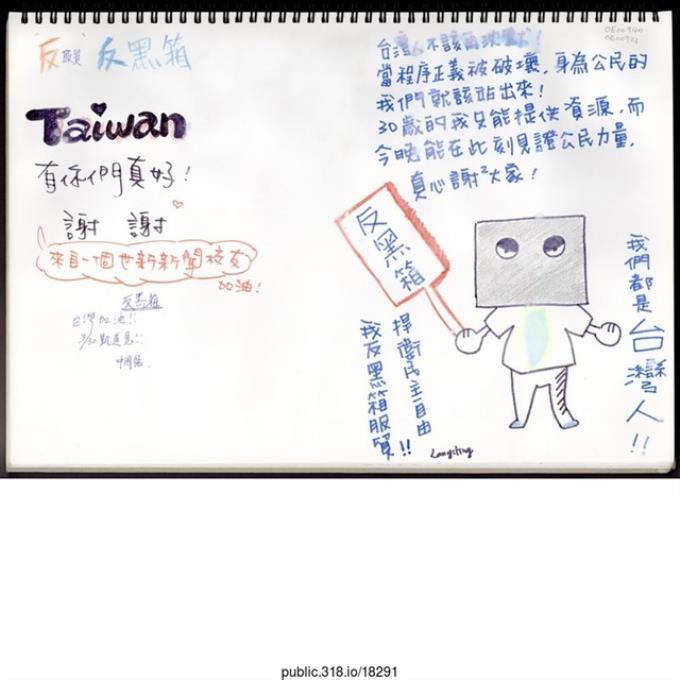 反服貿 反黑箱
Taiwan
有你們真好！
謝謝
來自一個世新新聞校友
加油！
反黑箱
台灣加油!!
3/30凱道見!!
台灣人不該再沈默！
當程序正義被破壞，身為公民的
我們就該站出來！
30歲的我只能提供資源，而
今晚能在此刻見證公民力量，
真心謝²大家！
反黑箱
捍衛民主自由
我反黑箱服貿!!
我們都是台灣人!!
public.318.io/18291